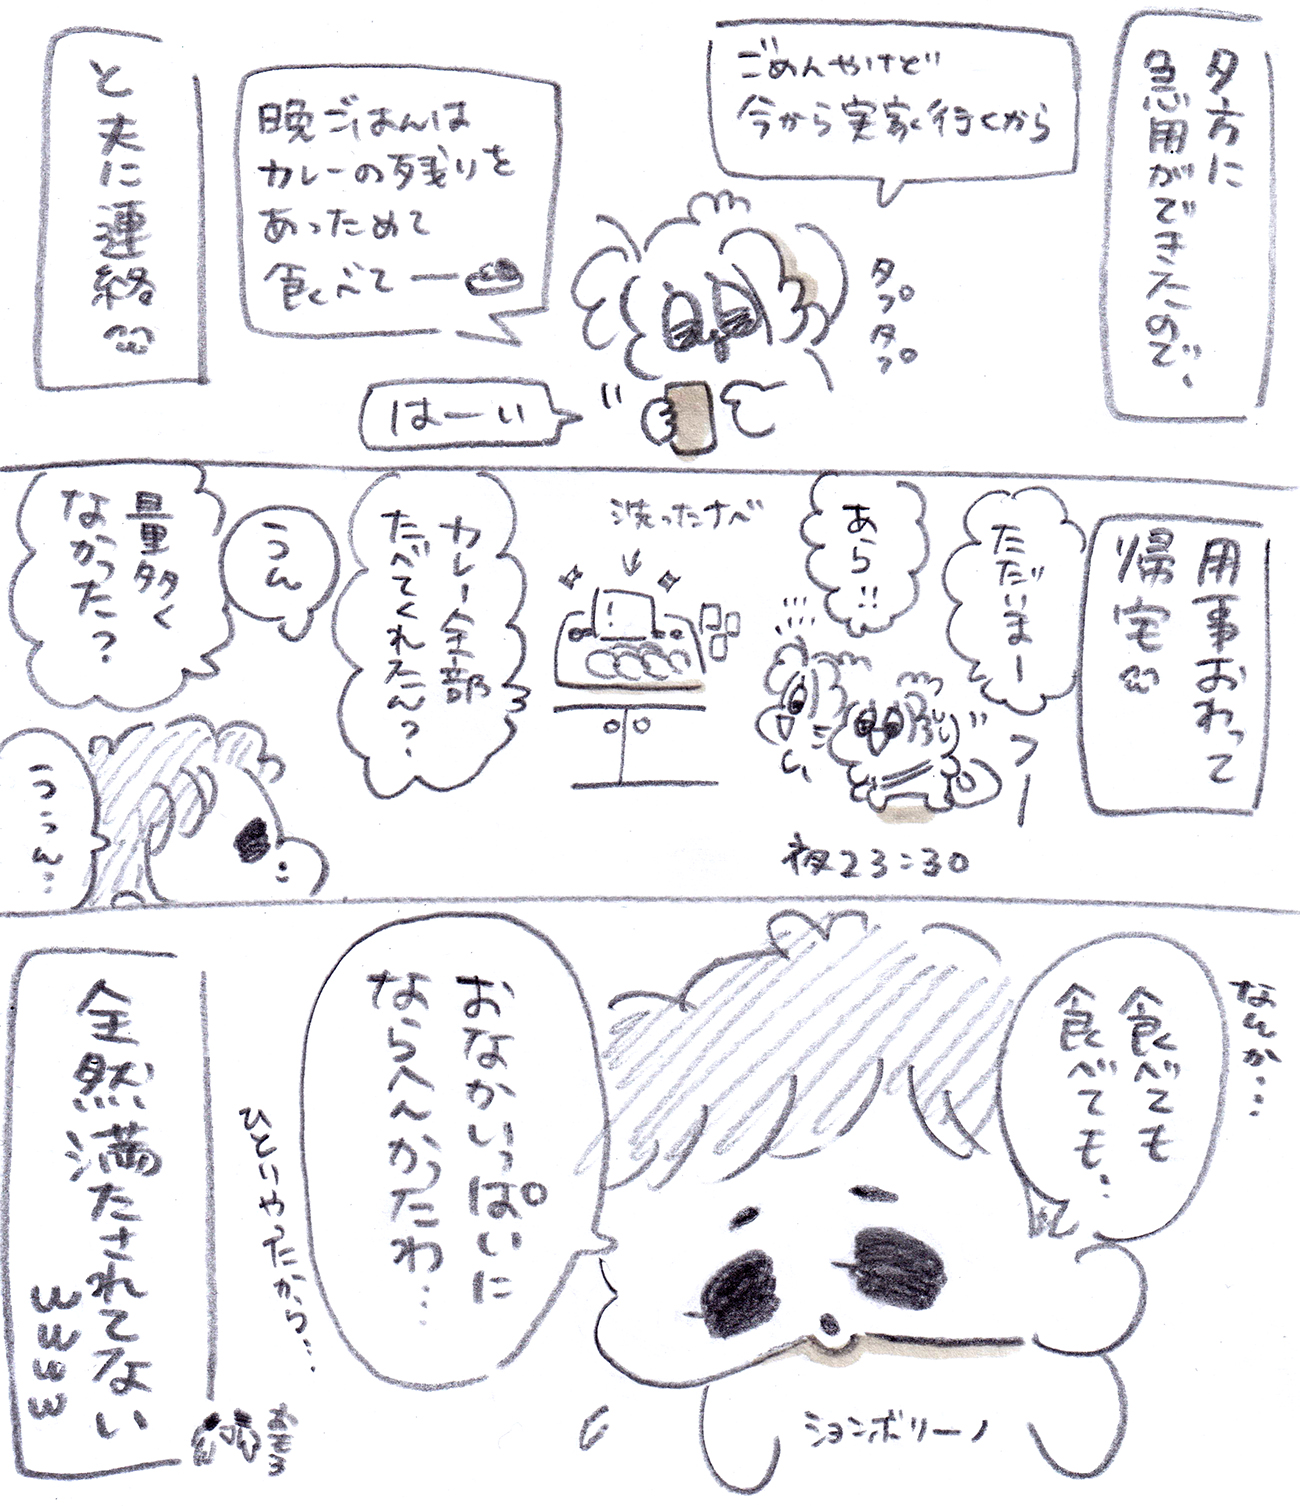 夕方に
急用ができたので、
ごめんやけど
今から実家行くから
タプ
タプ
晩ごはんは
カレーの残りを
あっためて
食べてー
はーい
と夫に連絡
用事おわって
帰宅
ただいまー
フー
夜23:30
あら!!
洗ったナベ
カレー全部
たべてくれたん?
うん
量多く
なかった?
ううん…
なんか…
食べても
食べても…
おなかいっぱいに
ならへんかったわ…
ションボリーノ
ひとりやったから…
全然満たされてない
www
おもろ